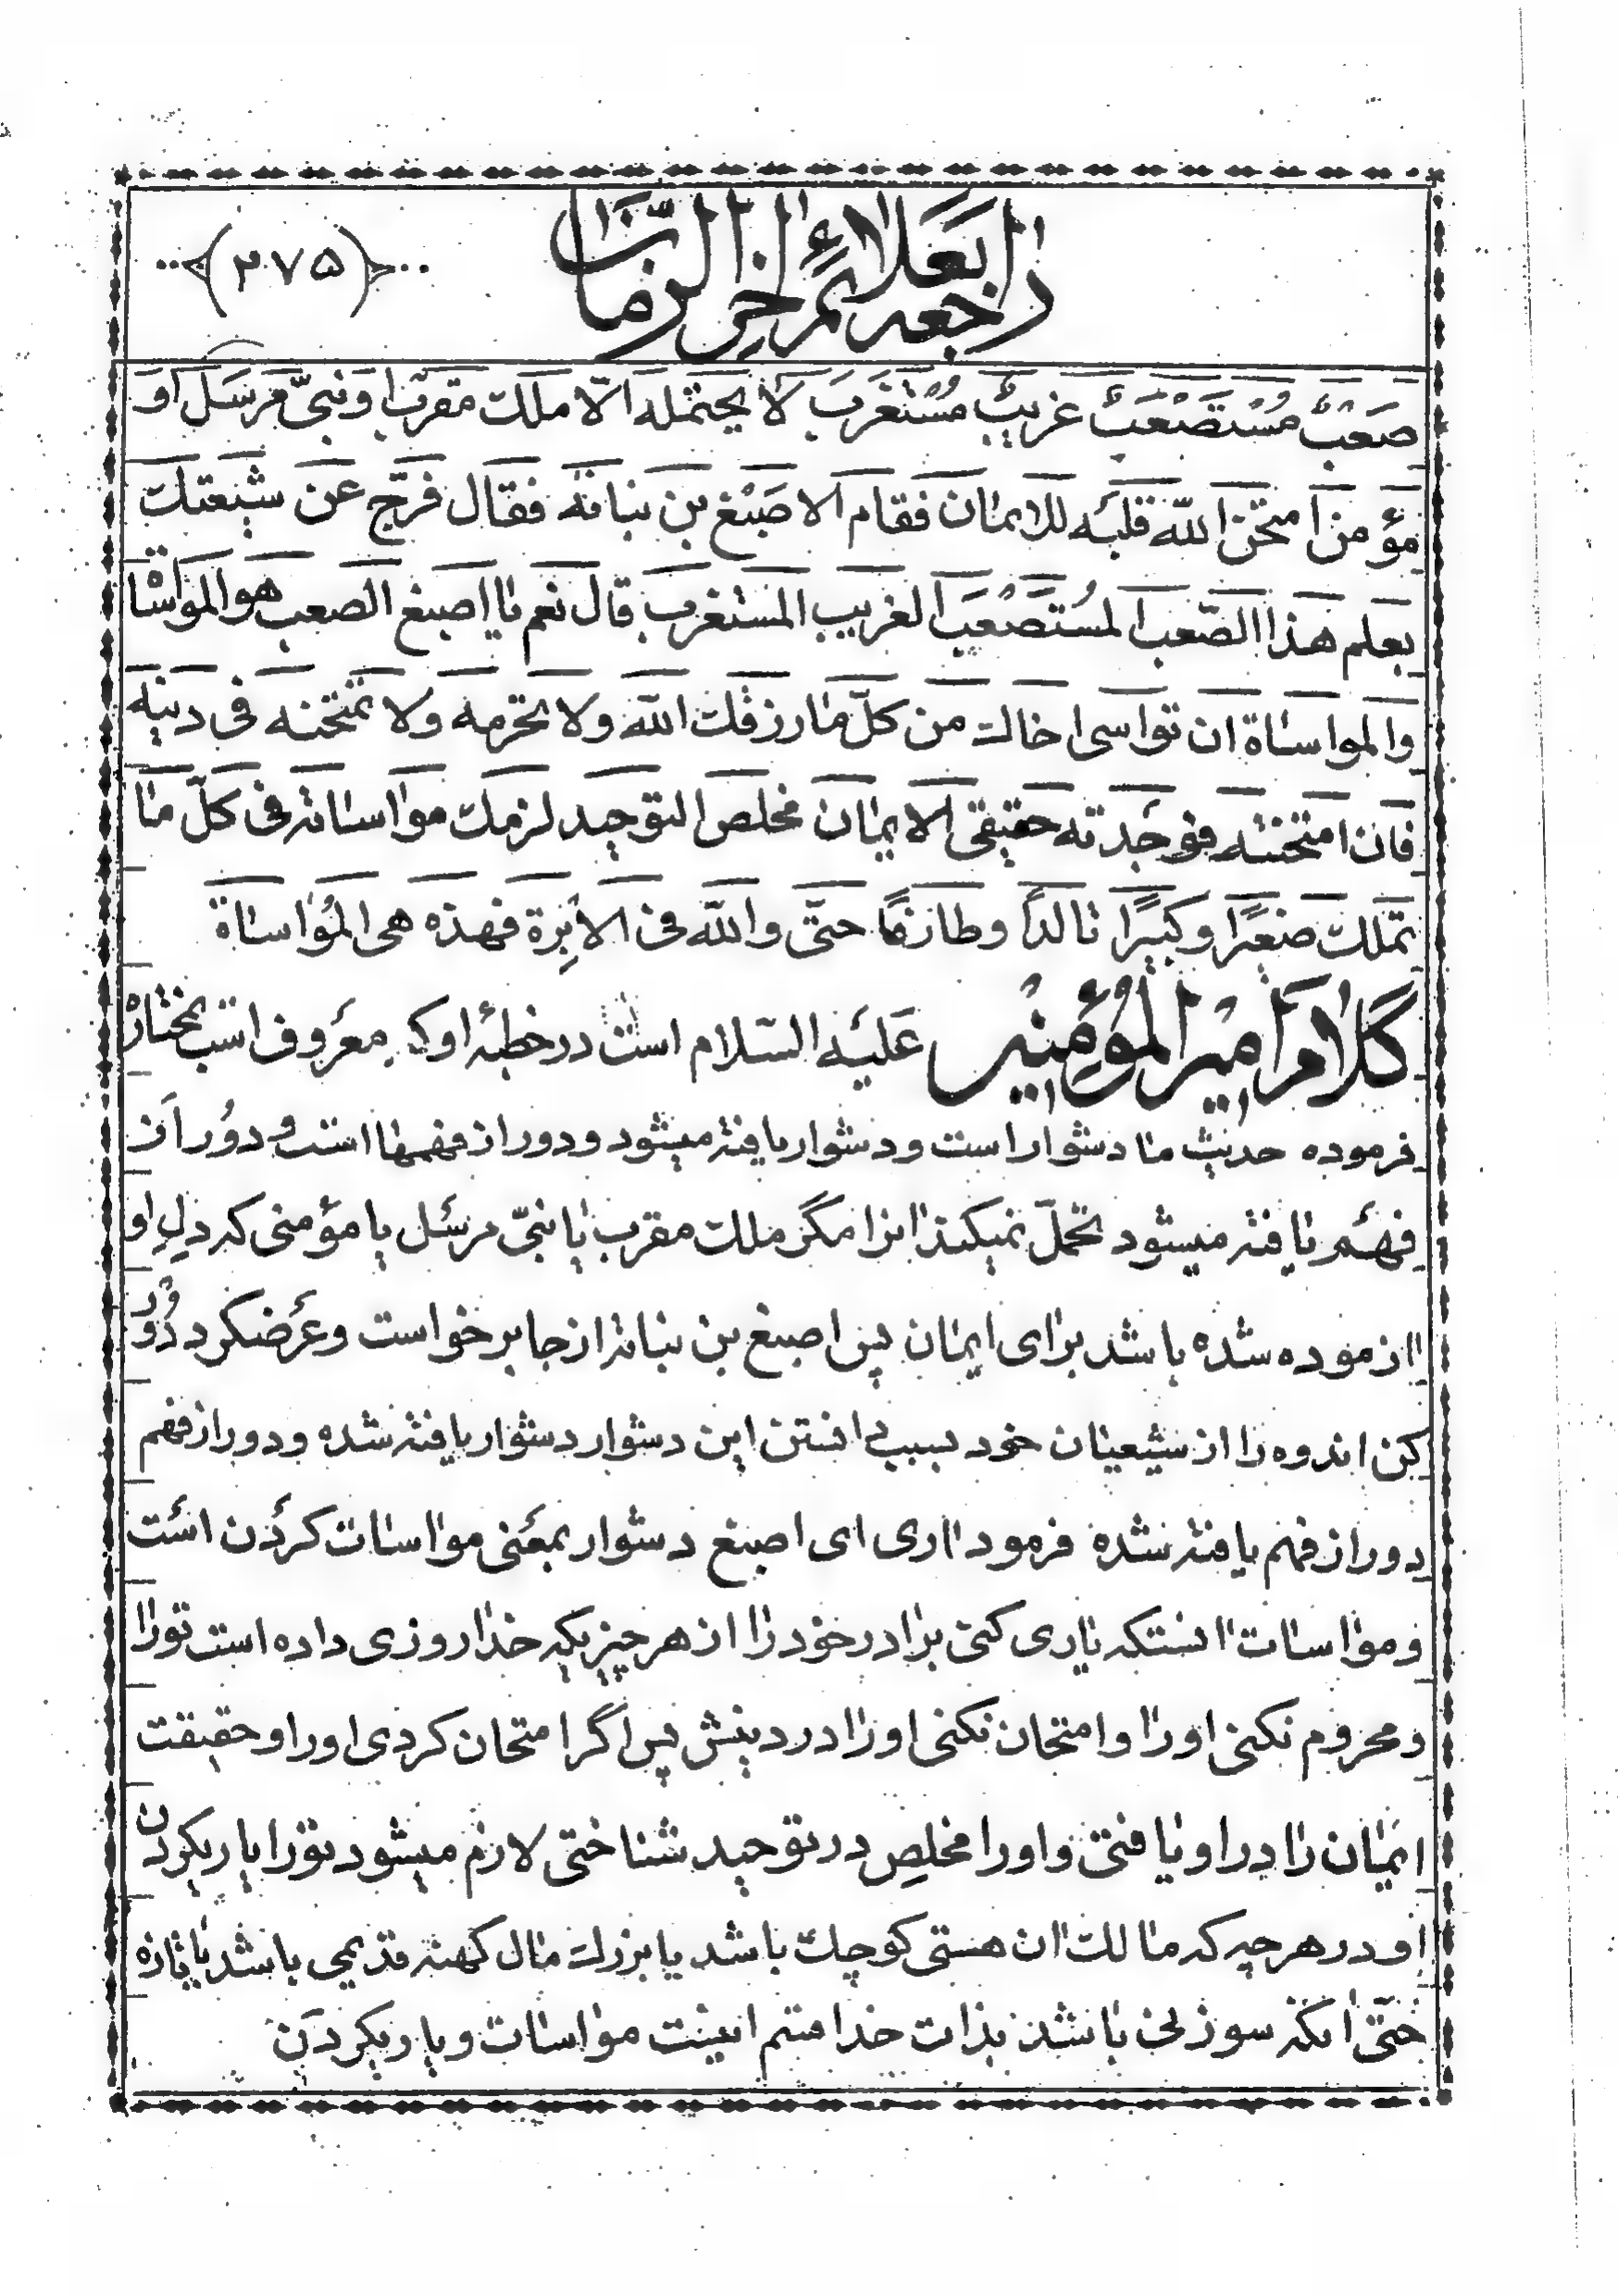 راجعه بعلائم اخر الزمان
(۲۷۵)
صَعْبٌ مُسْتَصْعَبٌ غریبٌ مُسْتَغْرَبَ لا یحتمله الّا ملک مقرّب او نبیّ مرسَل او
مؤمن امتحن اللّه قلبَه للایمان فقام الاصبَغ بن نباته فقال فرّج عن شیعتک
بعلم هذا الصّعب المُستَصْعَب الغریب المستغرب قال نعم یا اصبغ الصعب هو المواساة
والمواساة ان تواسی اخاک من کلّ ما رزقک اللّه ولا تحرمه ولا تمتحنه فی دینه
فان امتحنته فوجدته حقیقی الایمان مخلص التوحید لزمک مواساته فی کلّ ما
تملک صغیرًا وکبیرًا تالدًا وطارفًا حتّی واللّه فی الابرة فهذه هی المُواساة
کلام امیر المؤمنین علیه السّلام است در خطبهٔ او که معروف است بمختاره
فرموده حدیث ما دشوار است و دشوار یافته میشود و دور از فهمها است و دور از
فهم یافته میشود تحمّل نمیکند انرا مگر ملک مقرب یا نبیّ مرسل یا مؤمنی که دلِ او
ازموده شده باشد برای ایمان پس اصبغ بن نباته از جا برخواست و عرضکرد دور
کن اندوه را از شیعیان خود بسبب دانستن این دشوار دشوار یافته شده و دور از فهم
دور از فهم یافته شده فرمود اری ای اصبغ دشوار بمعنی مواسات کردن است
و مواسات انستکه یاری کنی برادر خود را از هر چیزیکه خدا روزی داده است تو را
و محروم نکنی او را و امتحان نکنی او را در دینش پس اگر امتحان کردی او را و حقیقت
ایمان را در او یافتی و او را مخلِص در توحید شناختی لازم میشود تو را یاریکردن
او در هر چه که مالک ان هستی کوچک باشد یا بزرک مال کهنه قدیمی باشد یا تازه
حتّی انکه سوزنی باشد بذات خدا قسم اینست مواسات و یاریکردن